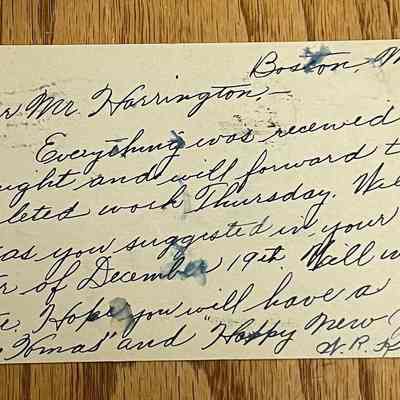 Boston, M
r Mr. Harrington,—
Everything was received
ight and will forward t
leted work Thursday. Wil
as you suggested in your
r of December 19th. Will w
e. Hope you will have a
Xmas" and "Happy New